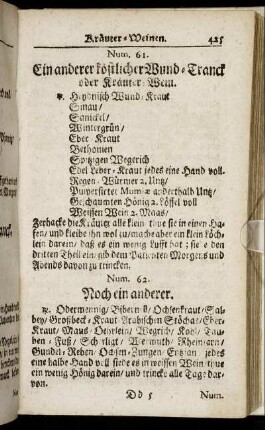 Kräuter-Weinen. 425
Num. 61.
Ein anderer köstlicher Wund-Tranck
oder Kräuter-Wein.
℞. Heydnisch Wund-Kraut
Sinau/
Sanickel/
Wintergrün/
Eber-Kraut
Bethonien
Spitzigen Wegerich
Edel Leber-Kraut jedes eine Hand voll.
Regen-Würmer 2. Untz/
Pulverisirter Mumiæ anderthalb Untz/
Geschaumten Hönig 2. Löffel voll
Weissen Wein 2. Maas/
Zerhacke die Kräuter alle klein/ thue sie in einen Ha-
fen/ und kleibe ihn wol zu/ mache aber ein klein Löch-
lein darein/ daß es ein wenig Lufft hat; siede den
dritten Theil ein/ gib dem Patienten Morgens und
Abends davon zu trincken.
Num. 62.
Noch ein anderer.
℞. Odermennig/ Bibernell/ Ochsenkraut/ Sal-
bey/ Großbeck-Kraut/ Arabischen Stöchas/ Eber-
Kraut/ Maus-Oehrlein/ Wegrich/ Kohl/ Tau-
ben-Fuß/ Wermuth/ Rheinfarn/
Gundel-Reben/ Ochsen-Zungen/ jedes
eine halbe Hand voll/ siede es in weissen Wein/ thue
ein wenig Hönig darein/ und trincke alle Tage dar-
von.
Dd 5 Num.